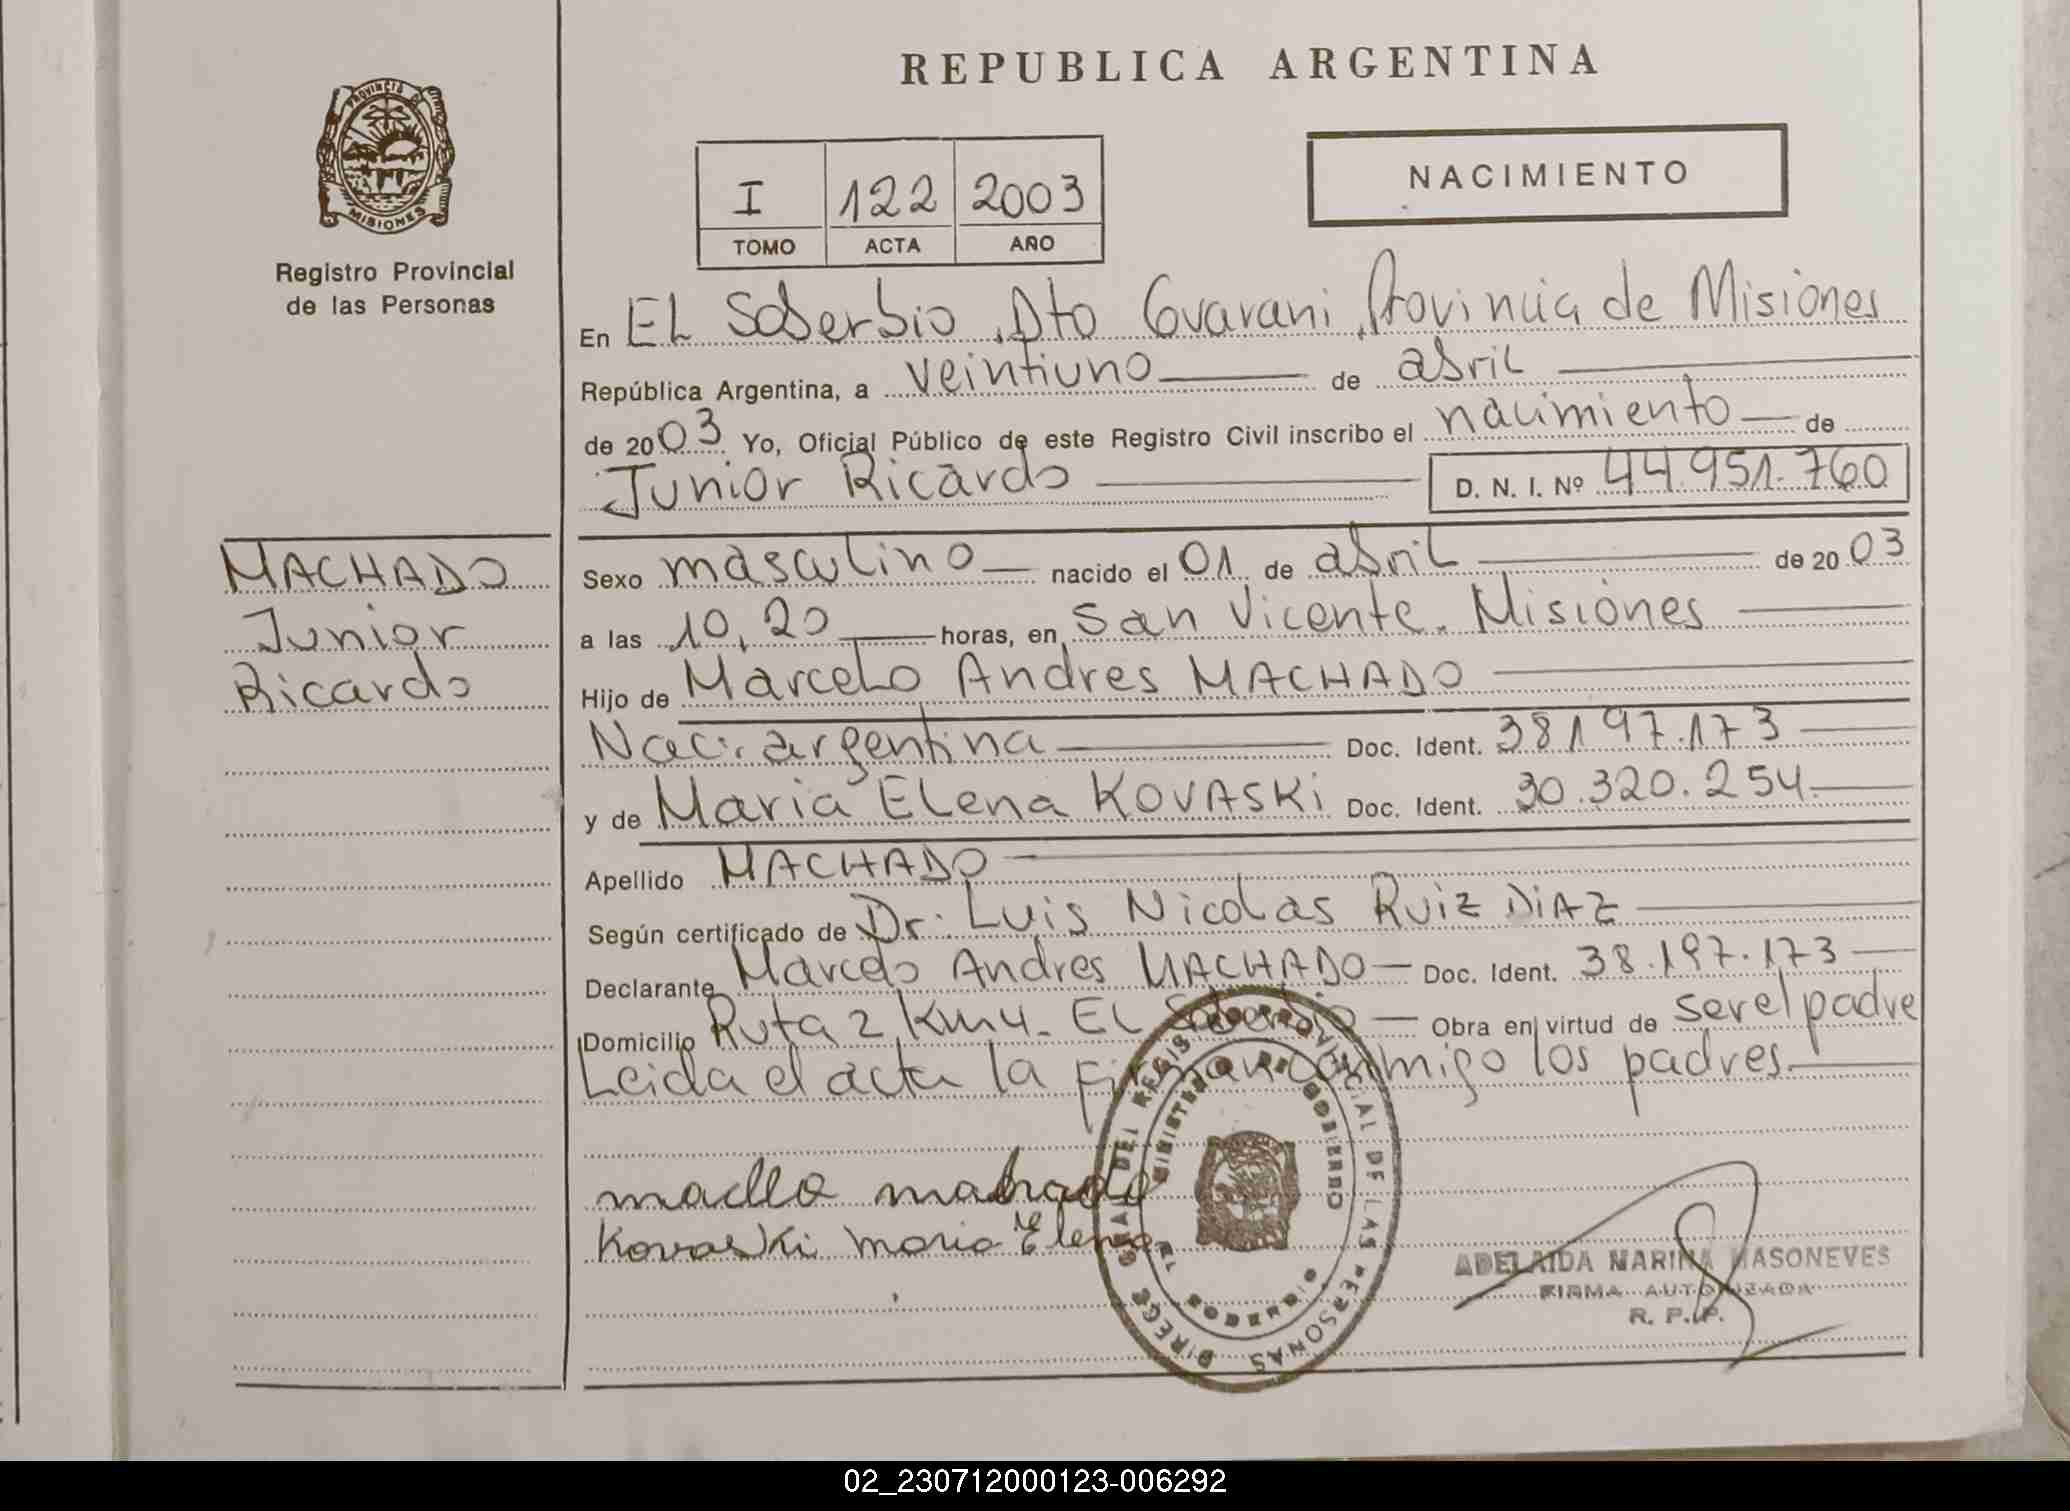 REPUBLICA ARGENTINA
PROVINCIA DE
MISIONES
Registro Provincial
de las Personas
I 122 2003
TOMO ACTA AÑO
NACIMIENTO
En EL Soberbio, Dto Guarani, Provincia de Misiones
República Argentina, a veintiuno de abril
de 2003 Yo, Oficial Público de este Registro Civil inscribo el nacimiento de
Junior Ricardo D. N. I. Nº 44.951.760
MACHADO
Junior
Ricardo
Sexo masculino nacido el 01 de abril de 2003
a las 10,20 horas, en San Vicente. Misiones
Hijo de Marcelo Andres MACHADO
Nac. argentina Doc. Ident. 38197.173
y de Maria Elena KOVASKI Doc. Ident. 30.320.254
Apellido MACHADO
Según certificado de Dr. Luis Nicolas Ruiz DIAZ
Declarante Marcelo Andres MACHADO Doc. Ident. 38.197.173
Domicilio Ruta 2 Km 4. EL Soberbio Obra en virtud de ser el padre
Leida el acta la firman conmigo los padres.
Kovaski Maria Elena
MINISTERIO DE GOBIERNO
EL SOBERBIO
ADELAIDA MARINA MASONEVES
FIRMA AUTORIZADA
R. P. P.
02_230712000123-006292